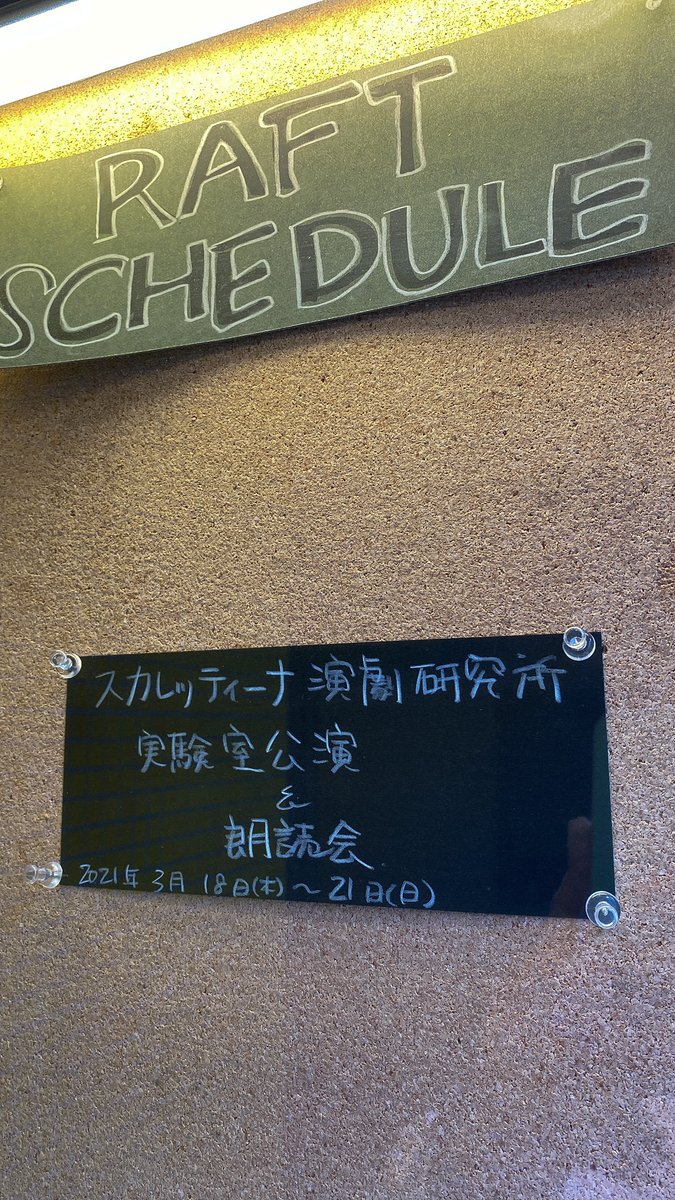 RAFT
SCHEDULE
スカレッティーナ 演劇研究所
実験室公演
&
朗読会
2021年 3月 18日(木)～21日(日)